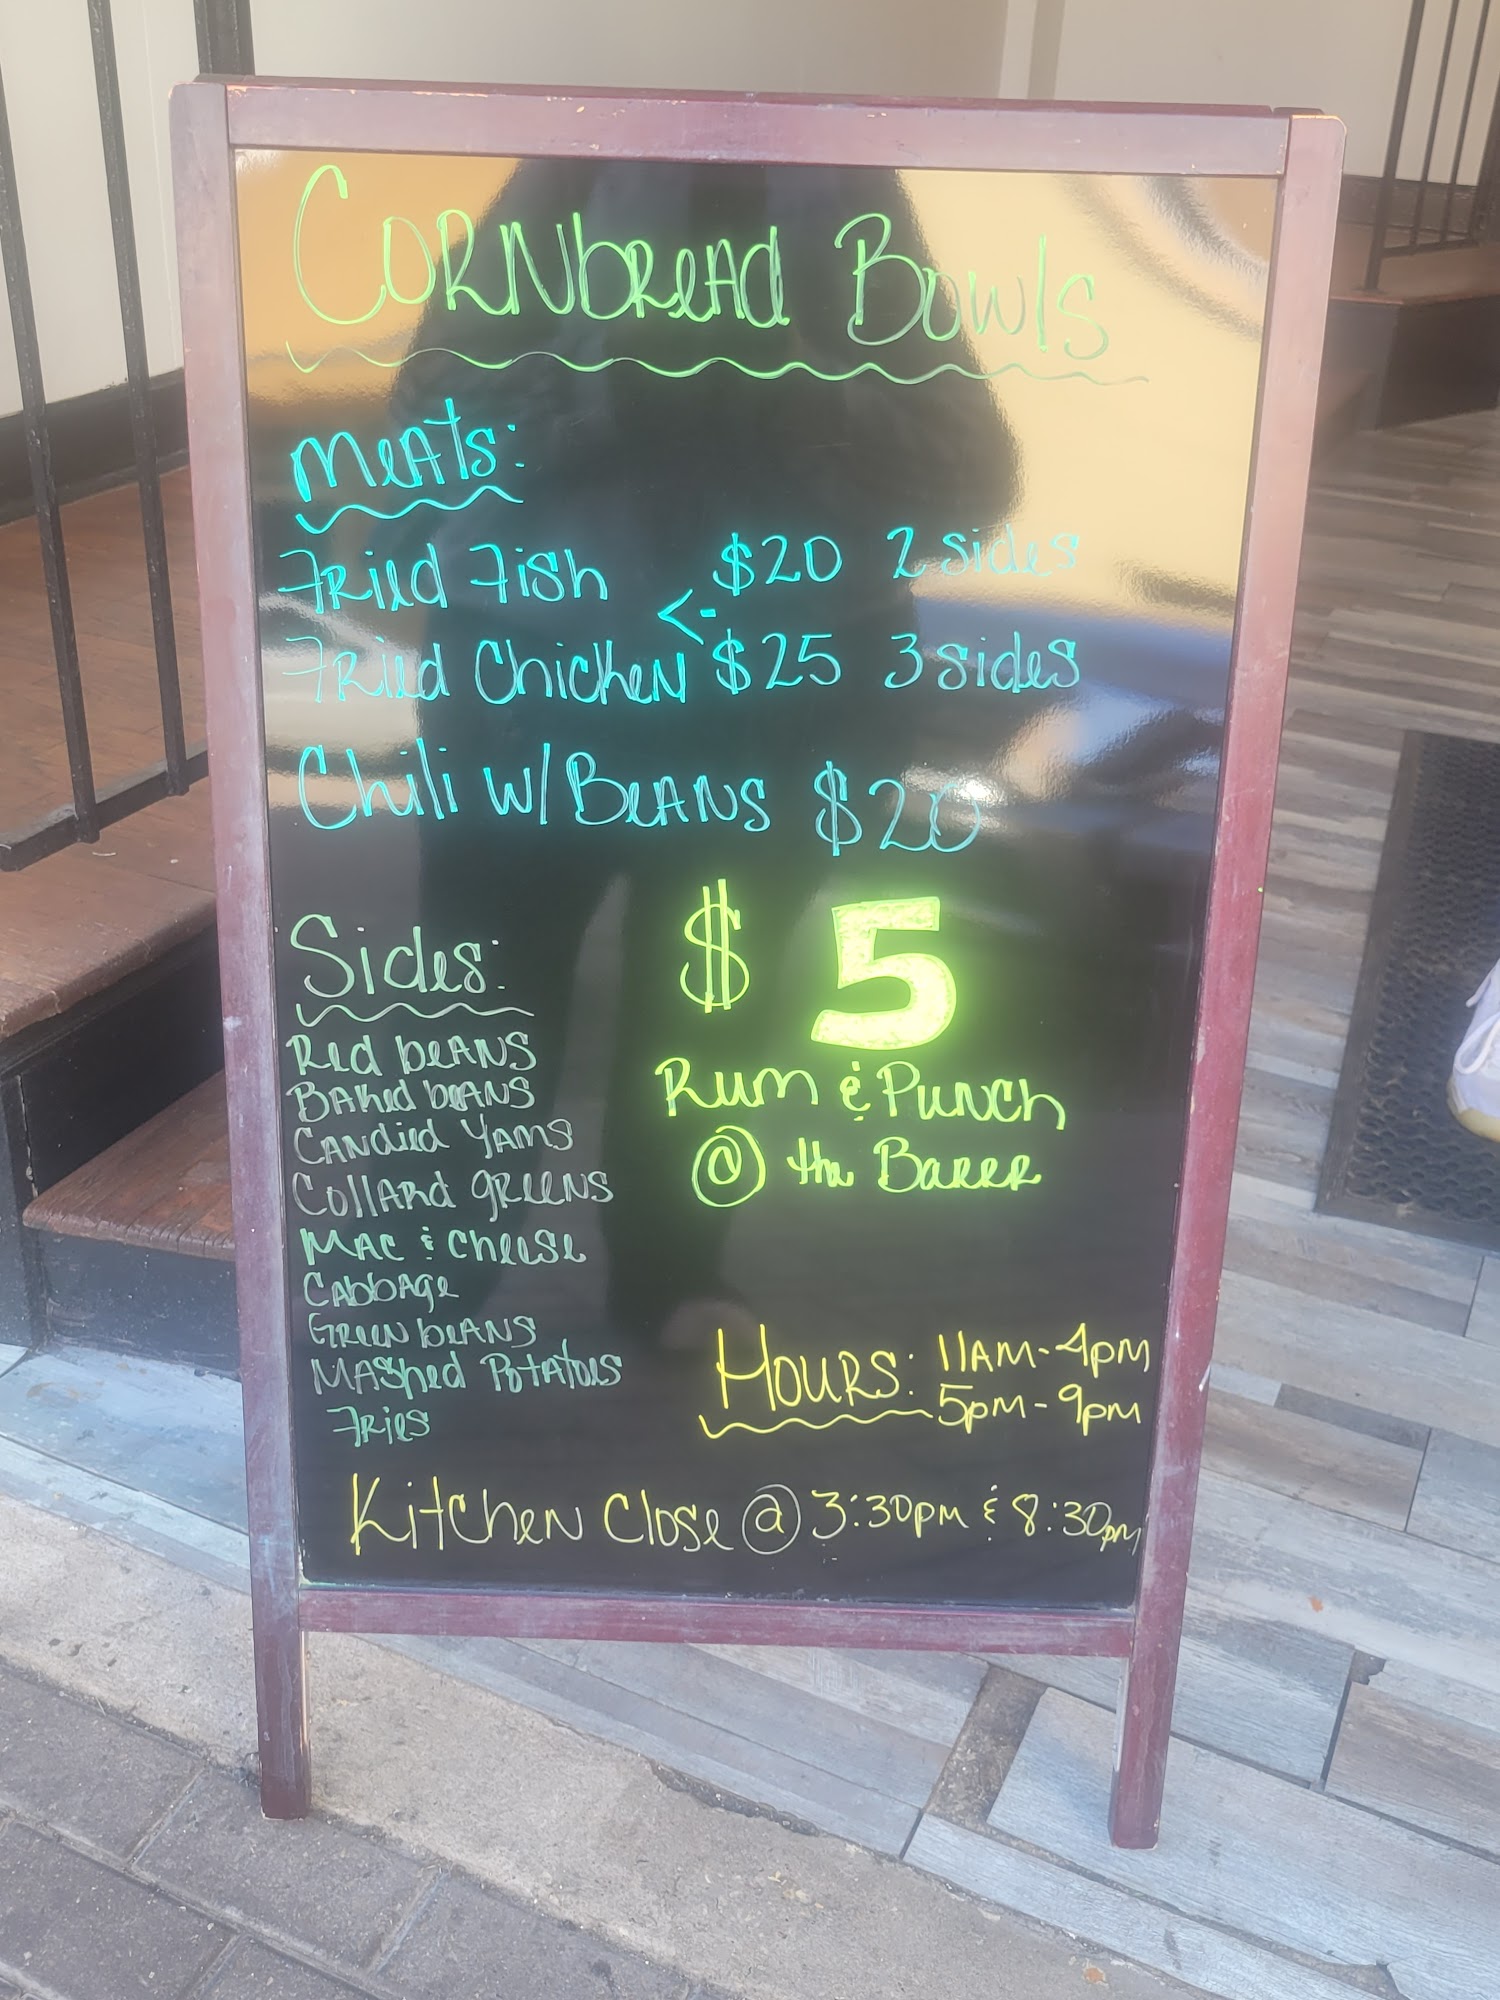 Cornbread Bowls
Meats:
Fried Fish
Fried Chicken
< - $20 2 sides
$25 3 sides
Chili w/Beans $20
Sides:
Red beans
Baked beans
Candied Yams
Collard greens
Mac & Cheese
Cabbage
Green beans
Mashed Potatoes
Fries
$ 5
Rum & Punch
@ the Barrr
Hours: 11AM-4pm
5pm-9pm
Kitchen Close @ 3:30pm & 8:30pm